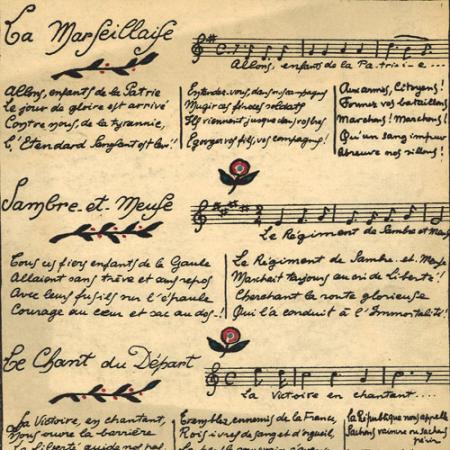 La Marseillaise
Allons, enfants de la Pa..trie...
Allons, enfants de la Patrie
Le jour de gloire est arrivé
Contre nous, de la tyrannie,
L'Etendard Sanglant est levé!!
Entendez-vous, dans nos campagnes
Mugir ces féroces soldats
Ils viennent jusque dans vos bras
Egorger vos fils, vos compagnes!
Aux armes, Citoyens!
Formez vos bataillons
Marchons! Marchons!
Qu'un sang impur
Abreuve nos sillons!
Sambre-et-Meuse
Le Régiment de Sambre et Meuse
Tous ces fiers enfants de la Gaule
Allaient sans trève et sans repos
Avec leurs fusils sur l'épaule
Courage au cœur et sac au dos..!
Le Régiment de Sambre-et-Meuse
Marchait toujours au cri de Liberté!
Cherchant la route glorieuse
Qui l'a conduit à l'Immortalité!
Le Chant du Départ
La Victoire en chantant....
La Victoire, en chantant,
Nous ouvre la barrière
La liberté guide nos pas
Tremblez, ennemis de la France,
Rois ivres de sang et d'orgueil,
La République nous appelle
Sachons vaincre ou sachons
périr